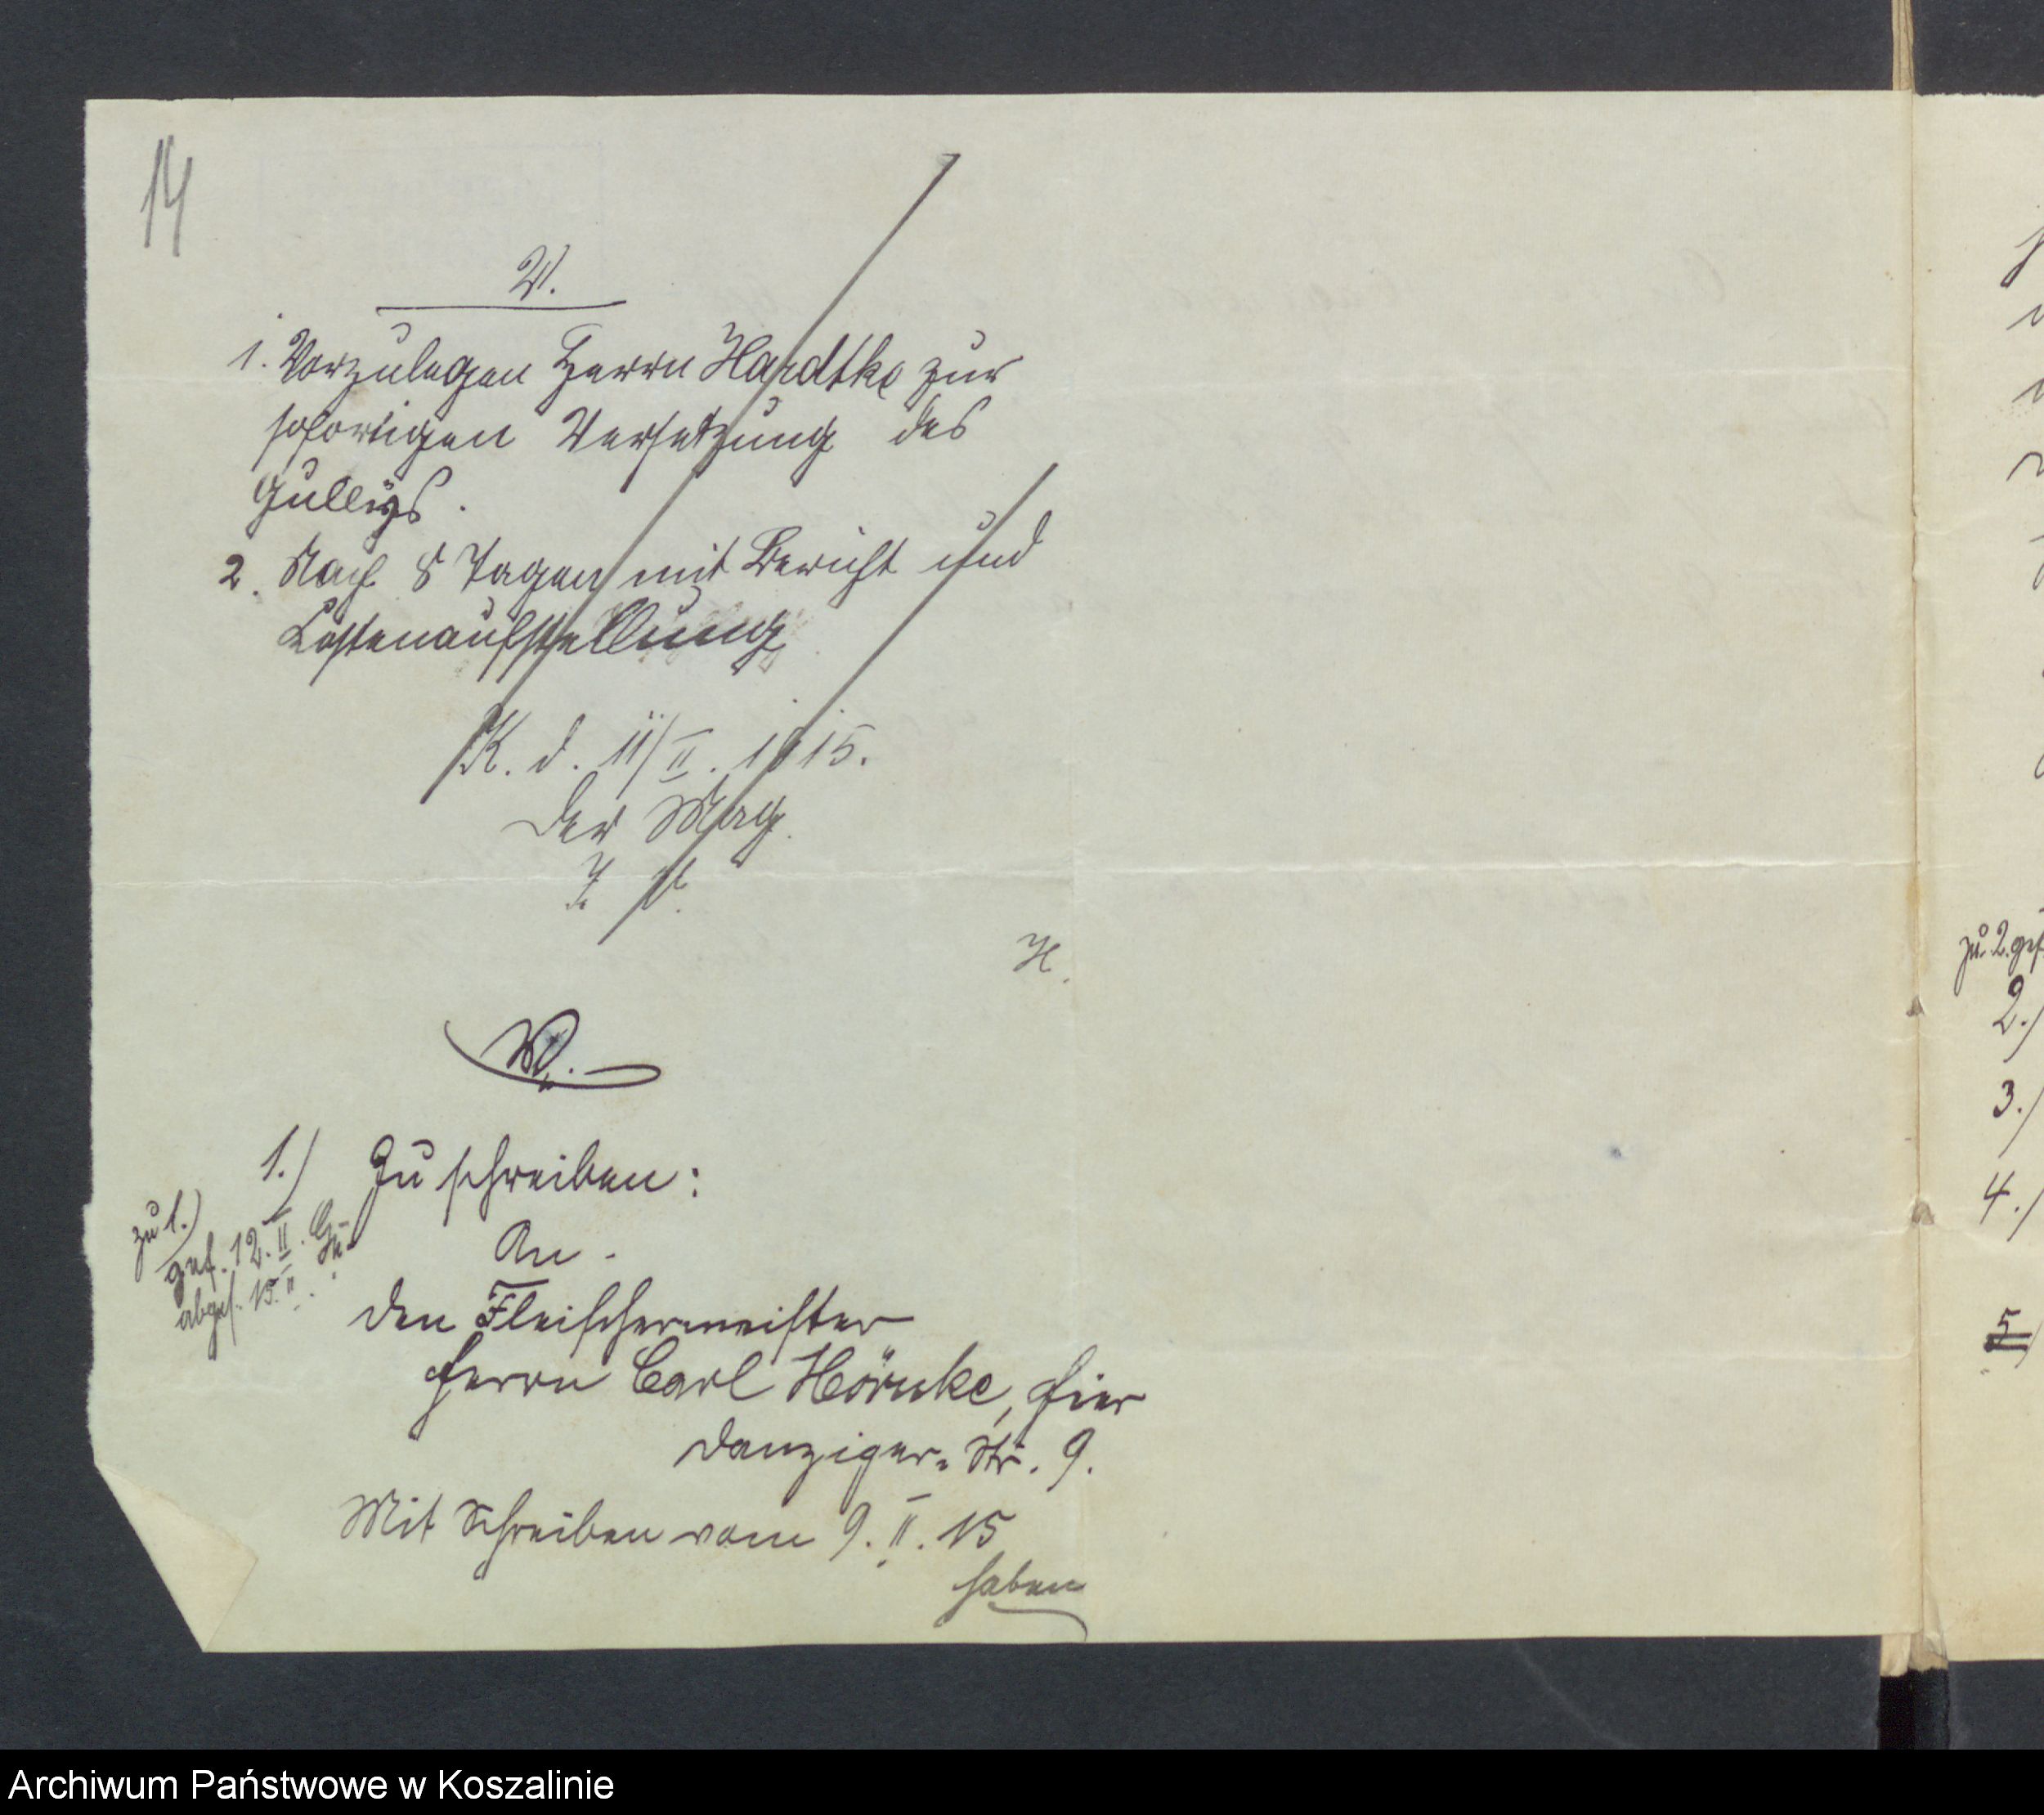 14
V.
1. Vorzulegen Herrn Hardtke zur
sofortigen Versetzung des
Gullys.
2. Nach 8 Tagen mit Bericht und
Kostenaufstellung
K. d. 11/II. 1915.
Der Mag.
H.
V.
1.) Zu schreiben:
zu 1.)
gef. 12. II. Gü
abges. 15. II.
An
den Fleischermeister
Herrn Carl Hörnke, hier
Danziger-Str. 9.
Mit Schreiben vom 9. II. 15
haben
zu 2. gef.
2.)
3.)
4.)
5
Archiwum Państwowe w Koszalinie